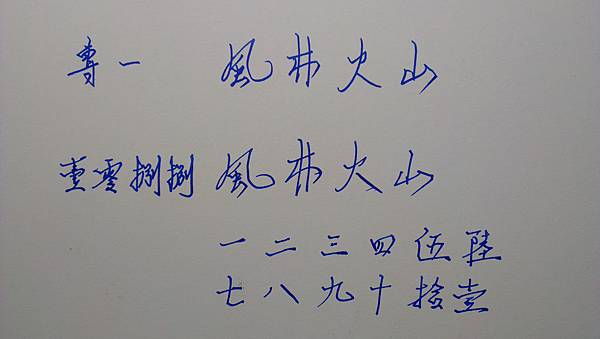 尊一 風林火山
壹零捌捌 風林火山
一二三四伍陸
七八九十拾壹